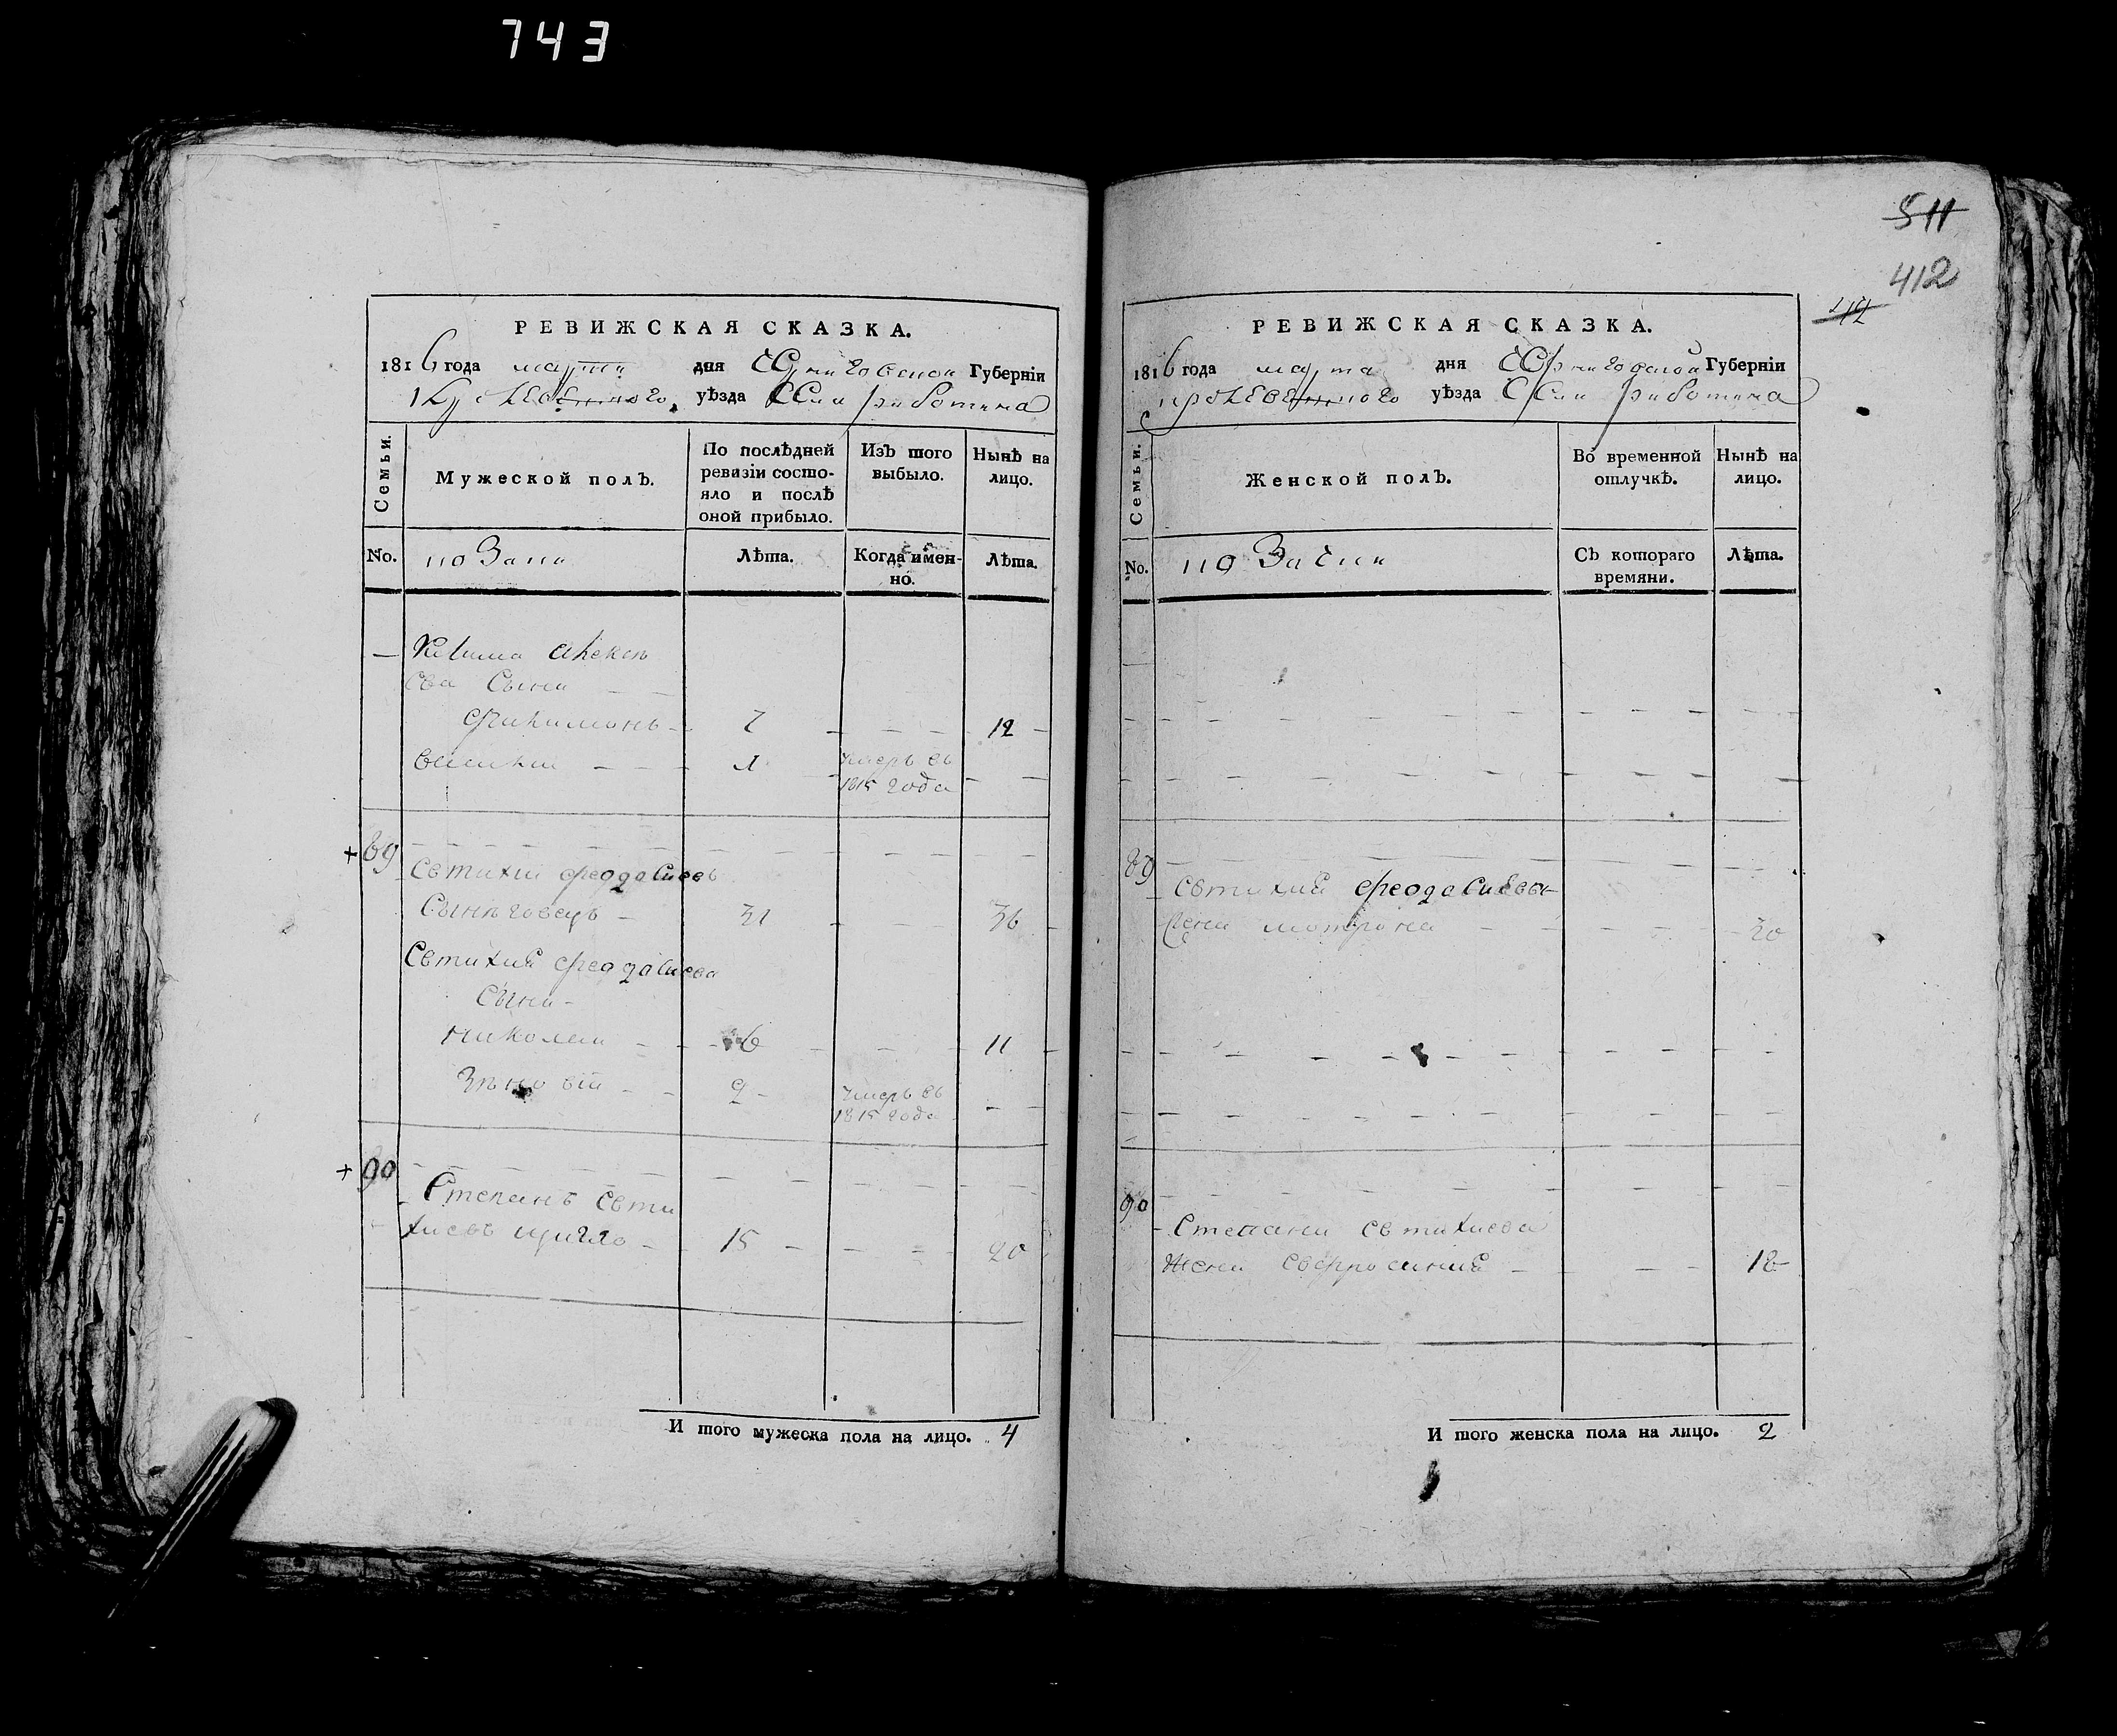 743
511
412
412
РЕВИЖСКАЯ СКАЗКА.
1816 года марта дня Черниговской Губерніи
Кролевецкого уѣзда Села работина
Семьи.
Мужеской полъ.
По послѣдней ревизіи состо-
яло и послѣ
оной прибыло.
Изъ того
выбыло.
Нынѣ на
лицо.
No.
Лѣта.
Когда имен-
но.
Лѣта.
сва Сына
Филимонъ 7 12
умеръ въ
1815 года
89
Евтихий феодосиевъ
Сынъ 31 36
Евтихия феодосиева
Сына
Николай 6 11
Зѣновій 2 умеръ въ
1815 года
90
Степанъ Евти
хиевъ 15 20
И того мужеска пола на лицо. 4
РЕВИЖСКАЯ СКАЗКА.
1816 года марта дня Черниговской Губерніи
кролевецкого уѣзда Села работина
Семьи.
Женской полъ.
Во временной
отлучкѣ.
Нынѣ на
лицо.
No.
Съ котораго
времяни.
Лѣта.
89
Евтихия феодосиева
жена мотрона 20
90
Степана Евтихиева
жена Евфросиния 18
И того женска пола на лицо. 2